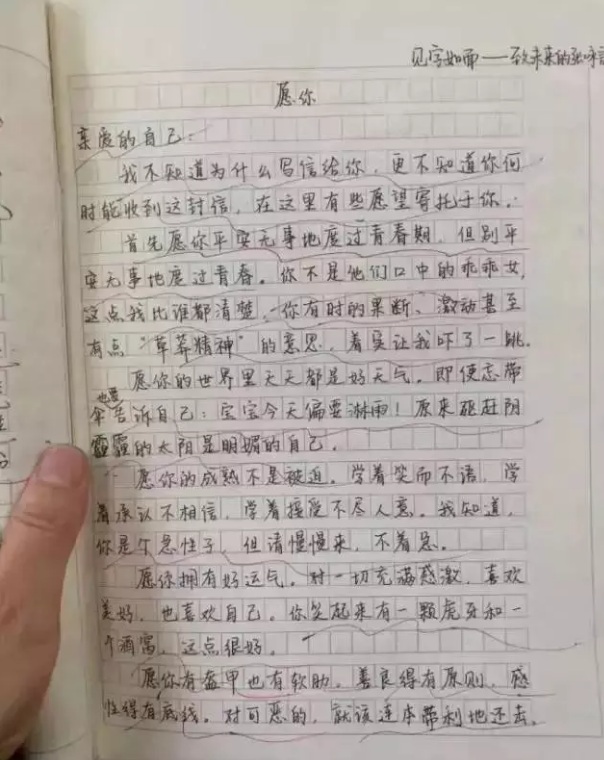 见字如面——致未来的张
愿你
亲爱的自己：
我不知道为什么写信给你，更不知道你何
时能收到这封信，在这里有些愿望寄托于你。
首先愿你平安无事地度过青春期，但别平
安无事地度过青春。你不是他们口中的乖乖女，
这点我比谁都清楚，你有时的果断、激动甚至
有点“草莽精神”的意思，着实让我吓了一跳。
愿你的世界里天天都是好天气。即便忘带
伞也要告诉自己：宝宝今天偏要淋雨！原来驱赶阴
霾霾的太阳是明媚的自己。
愿你的成熟不是被迫。学着笑而不语，学
着承认不相信，学着接受不尽人意。我知道，
你是个急性子，但请慢慢来，不着急。
愿你拥有好运气。对一切充满感激，喜欢
美好，也喜欢自己。你笑起来有一颗虎牙和一
个酒窝，这点很好。
愿你有盔甲也有软肋。善良得有原则，感
性得有底线。对可恶的，就该连本带利地还去。